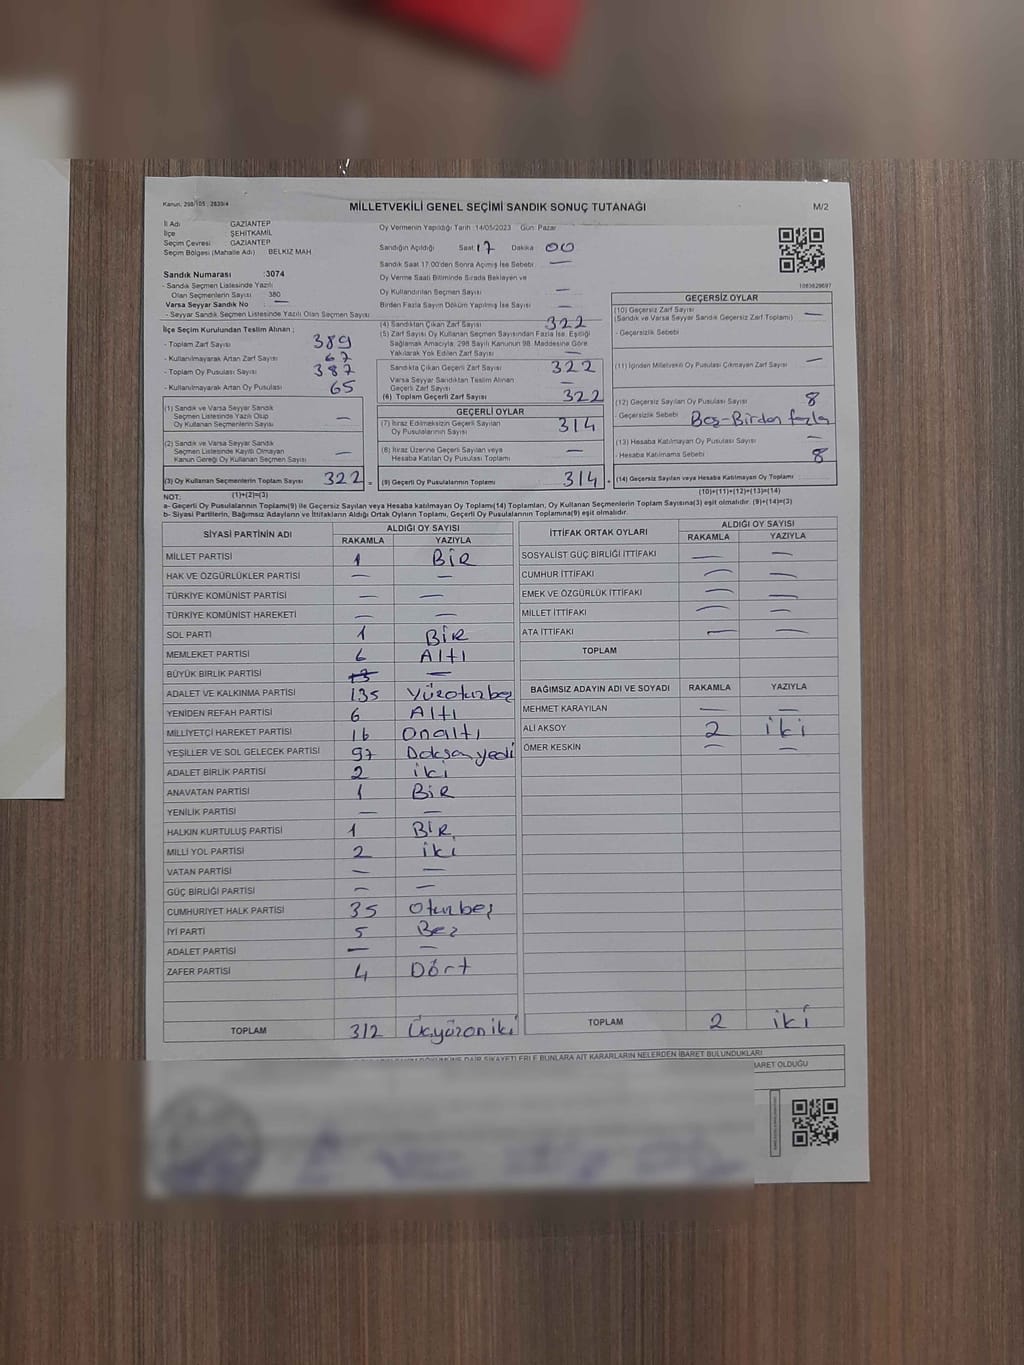 Kanun, 298/105 ; 2839/4
MİLLETVEKİLİ GENEL SEÇİMİ SANDIK SONUÇ TUTANAĞI
M/2
İl Adı GAZİANTEP
İlçe ŞEHİTKAMİL
Seçim Çevresi GAZİANTEP
Seçim Bölgesi (Mahalle Adı) BELKIZ MAH.
Sandık Numarası :3074
- Sandık Seçmen Listesinde Yazılı
Olan Seçmenlerin Sayısı 380
Varsa Seyyar Sandık No —
- Seyyar Sandık Seçmen Listesinde Yazılı Olan Seçmen Sayısı
Oy Vermenin Yapıldığı Tarih :14/05/2023 Gün: Pazar
Sandığın Açıldığı Saat 17 Dakika 00
Sandık Saat 17:00'den Sonra Açılmış İse Sebebi: —
Oy Verme Saati Bitiminde Sırada Bekleyen ve
Oy Kullandırılan Seçmen Sayısı —
Birden Fazla Sayım Döküm Yapılmış İse Sayısı —
1083829697
İlçe Seçim Kurulundan Teslim Alınan ;
- Toplam Zarf Sayısı 389
- Kullanılmayarak Artan Zarf Sayısı 67
- Toplam Oy Pusulası Sayısı 387
- Kullanılmayarak Artan Oy Pusulası 65
(1) Sandık ve Varsa Seyyar Sandık
Seçmen Listesinde Yazılı Olup
Oy Kullanan Seçmenlerin Sayısı —
(2) Sandık ve Varsa Seyyar Sandık
Seçmen Listesinde Kayıtlı Olmayan
Kanun Gereği Oy Kullanan Seçmen Sayısı —
(3) Oy Kullanan Seçmenlerin Toplam Sayısı 322
(1)+(2)=(3)
(4) Sandıktan Çıkan Zarf Sayısı 322
(5) Zarf Sayısı Oy Kullanan Seçmen Sayısından Fazla İse, Eşitliği
Sağlamak Amacıyla, 298 Sayılı Kanunun 98. Maddesine Göre
Yakılarak Yok Edilen Zarf Sayısı —
Sandıkta Çıkan Geçerli Zarf Sayısı 322
Varsa Seyyar Sandıktan Teslim Alınan
Geçerli Zarf Sayısı —
(6) Toplam Geçerli Zarf Sayısı 322
GEÇERLİ OYLAR
(7) İtiraz Edilmeksizin Geçerli Sayılan
Oy Pusulalarının Sayısı 314
(8) İtiraz Üzerine Geçerli Sayılan veya
Hesaba Katılan Oy Pusulası Toplamı —
(9) Geçerli Oy Pusulalarının Toplamı 314
GEÇERSİZ OYLAR
(10) Geçersiz Zarf Sayısı
(Sandık ve Varsa Seyyar Sandık Geçersiz Zarf Toplamı) —
- Geçersizlik Sebebi
(11) İçinden Milletvekili Oy Pusulası Çıkmayan Zarf Sayısı —
(12) Geçersiz Sayılan Oy Pusulası Sayısı 8
- Geçersizlik Sebebi Boş-Birden fazla
(13) Hesaba Katılmayan Oy Pusulası Sayısı —
- Hesaba Katılmama Sebebi
(14) Geçersiz Sayılan veya Hesaba Katılmayan Oy Toplamı 8
(10)+(11)+(12)+(13)=(14)
NOT:
a- Geçerli Oy Pusulalarının Toplamı(9) ile Geçersiz Sayılan veya Hesaba katılmayan Oy Toplamı(14) Toplamları, Oy Kullanan Seçmenlerin Toplam Sayısına(3) eşit olmalıdır. (9)+(14)=(3)
b- Siyasi Partilerin, Bağımsız Adayların ve İttifakların Aldığı Ortak Oyların Toplamı, Geçerli Oy Pusulalarının Toplamına(9) eşit olmalıdır.
SİYASİ PARTİNİN ADI ALDIĞI OY SAYISI
RAKAMLA YAZIYLA
MİLLET PARTİSİ 1 Bir
HAK VE ÖZGÜRLÜKLER PARTİSİ — —
TÜRKİYE KOMÜNİST PARTİSİ — —
TÜRKİYE KOMÜNİST HAREKETİ — —
SOL PARTİ 1 Bir
MEMLEKET PARTİSİ 6 Altı
BÜYÜK BİRLİK PARTİSİ —
ADALET VE KALKINMA PARTİSİ 135 Yüzotuzbeş
YENİDEN REFAH PARTİSİ 6 Altı
MİLLİYETÇİ HAREKET PARTİSİ 16 Onaltı
YEŞİLLER VE SOL GELECEK PARTİSİ 97 Doksanyedi
ADALET BİRLİK PARTİSİ 2 iki
ANAVATAN PARTİSİ 1 Bir
YENİLİK PARTİSİ — —
HALKIN KURTULUŞ PARTİSİ 1 Bir
MİLLİ YOL PARTİSİ 2 iki
VATAN PARTİSİ — —
GÜÇ BİRLİĞİ PARTİSİ — —
CUMHURİYET HALK PARTİSİ 35 Otuzbeş
İYİ PARTİ 5 Beş
ADALET PARTİSİ — —
ZAFER PARTİSİ 4 Dört
TOPLAM 312 Üçyüzoniki
İTTİFAK ORTAK OYLARI ALDIĞI OY SAYISI
RAKAMLA YAZIYLA
SOSYALİST GÜÇ BİRLİĞİ İTTİFAKI — —
CUMHUR İTTİFAKI — —
EMEK VE ÖZGÜRLÜK İTTİFAKI — —
MİLLET İTTİFAKI — —
ATA İTTİFAKI — —
TOPLAM
BAĞIMSIZ ADAYIN ADI VE SOYADI RAKAMLA YAZIYLA
MEHMET KARAYILAN — —
ALİ AKSOY 2 iki
ÖMER KESKİN — —
TOPLAM 2 iki
BUNLARA AİT KARARLARIN NELERDEN İBARET BULUNDUKLARI
OLDUĞU